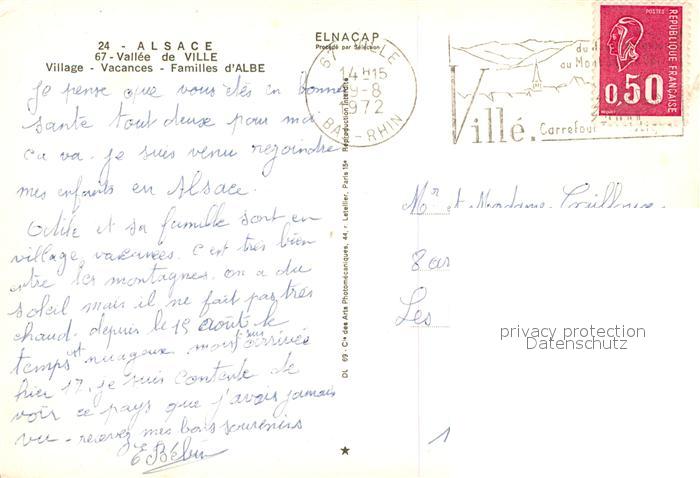 24 - ALSACE
67 - Vallée de VILLE
Village - Vacances - Familles d'ALBE
ELNACAP
Procédé par Sélection
67 VILLE
14H15
9-8
1972
BAS-RHIN
Villé.
Carrefour
POSTES
REPUBLIQUE FRANÇAISE
0,50
Je pense que vous êtes en bonne
santé tout deux pour moi
ça va. je suis venu rejoindre
mes enfants en Alsace.
et sa famille sont en
village vacances. c'est très bien
entre les montagnes. on a du
soleil mais il ne fait pas très
chaud. depuis le 15 août le
temps est nuageux. arrivée
hier 17. je suis contente de
voir ce pays que j'avais jamais
vu - recevez mes bons souvenirs
DL 69 - Cie des Arts Photomécaniques, 44, r. Letellier, Paris 15e Reproduction interdite
Mr et Madame
Les
1
privacy protection
Datenschutz